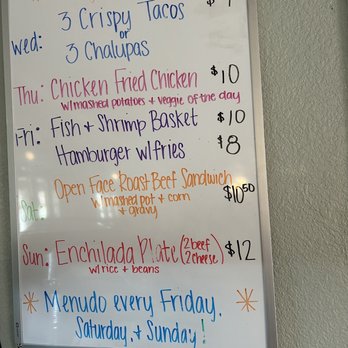 3 Crispy Tacos
or
Wed: 3 Chalupas
Thu: Chicken Fried Chicken $10
w/mashed potatoes + veggie of the day
Fri: Fish + Shrimp Basket $10
Hamburger w/fries $8
Open Face Roast Beef Sandwich
Sat: w/mashed pot + corn $10.50
+ gravy
Sun: Enchilada Plate (2 beef $12
2 cheese)
w/rice + beans
Menudo every Friday,
Saturday, + Sunday!